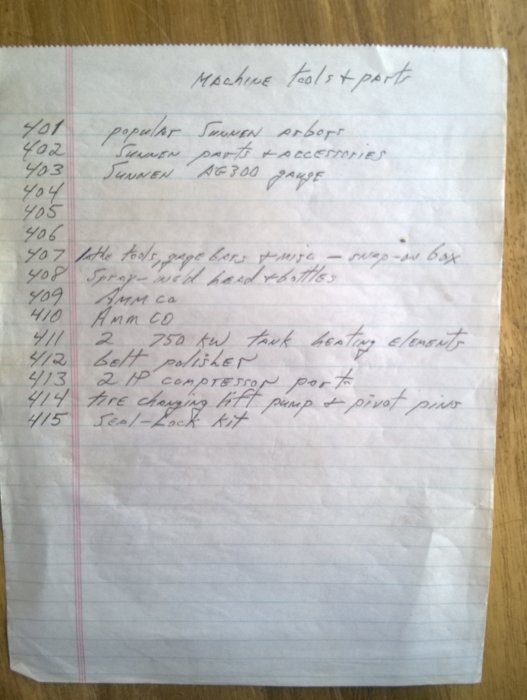 MACHINE tools + parts
401 popular SUNNEN arbors
402 SUNNEN parts + ACCESSORIES
403 SUNNEN AG300 gauge
404
405
406
407 lathe tools, gage bars + misc - snap-on box
408 Spray-weld head + bottles
409 AMMCO
410 AMMCO
411 2 750 KW TANK heating elements
412 belt polisher
413 2 HP compressor parts
414 tire changing lift pump + pivot pins
415 Seal-Lock Kit